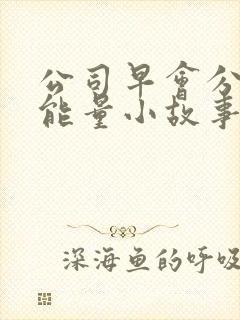 公司早會分
能量小故事
深海鱼的呼吸